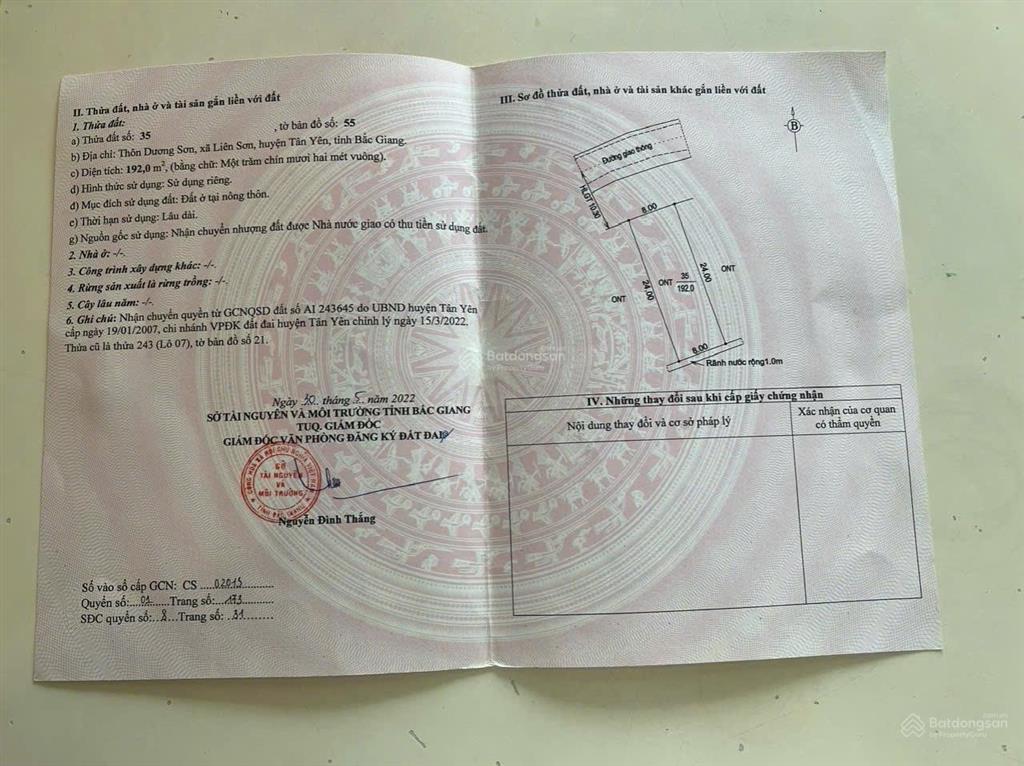 II. Thửa đất, nhà ở và tài sản gắn liền với đất
1. Thửa đất:
a) Thửa đất số: 35 , tờ bản đồ số: 55
b) Địa chỉ: Thôn Dương Sơn, xã Liên Sơn, huyện Tân Yên, tỉnh Bắc Giang.
c) Diện tích: 192,0 m², (bằng chữ: Một trăm chín mươi hai mét vuông).
d) Hình thức sử dụng: Sử dụng riêng.
đ) Mục đích sử dụng đất: Đất ở tại nông thôn.
e) Thời hạn sử dụng: Lâu dài.
g) Nguồn gốc sử dụng: Nhận chuyển nhượng đất được Nhà nước giao có thu tiền sử dụng đất.
2. Nhà ở: -/-.
3. Công trình xây dựng khác: -/-.
4. Rừng sản xuất là rừng trồng: -/-.
5. Cây lâu năm: -/-.
6. Ghi chú: Nhận chuyển quyền từ GCNQSD đất số AI 243645 do UBND huyện Tân Yên
cấp ngày 19/01/2007, chi nhánh VPĐK đất đai huyện Tân Yên chỉnh lý ngày 15/3/2022.
Thửa cũ là thửa 243 (Lô 07), tờ bản đồ số 21.
Ngày 30 tháng 5 năm 2022
SỞ TÀI NGUYÊN VÀ MÔI TRƯỜNG TỈNH BẮC GIANG
TUQ. GIÁM ĐỐC
GIÁM ĐỐC VĂN PHÒNG ĐĂNG KÝ ĐẤT ĐAI
SỞ
TÀI NGUYÊN
VÀ
MÔI TRƯỜNG
TỈNH BẮC GIANG
Nguyễn Đình Thắng
Số vào sổ cấp GCN: CS .....02015..........
Quyển số:...01.......Trang số:...173..........
SĐC quyển số:..8...Trang số: ..31.........
III. Sơ đồ thửa đất, nhà ở và tài sản khác gắn liền với đất
B
Đường giao thông
HLGT 10.30
8.00
24.00
24.00
ONT
ONT
35
192.0
ONT
8.00
Rãnh nước rộng1.0m
IV. Những thay đổi sau khi cấp giấy chứng nhận
Nội dung thay đổi và cơ sở pháp lý
Xác nhận của cơ quan
có thẩm quyền
Batdongsan
by PropertyGuru
Batdongsan
.com.vn
by PropertyGuru